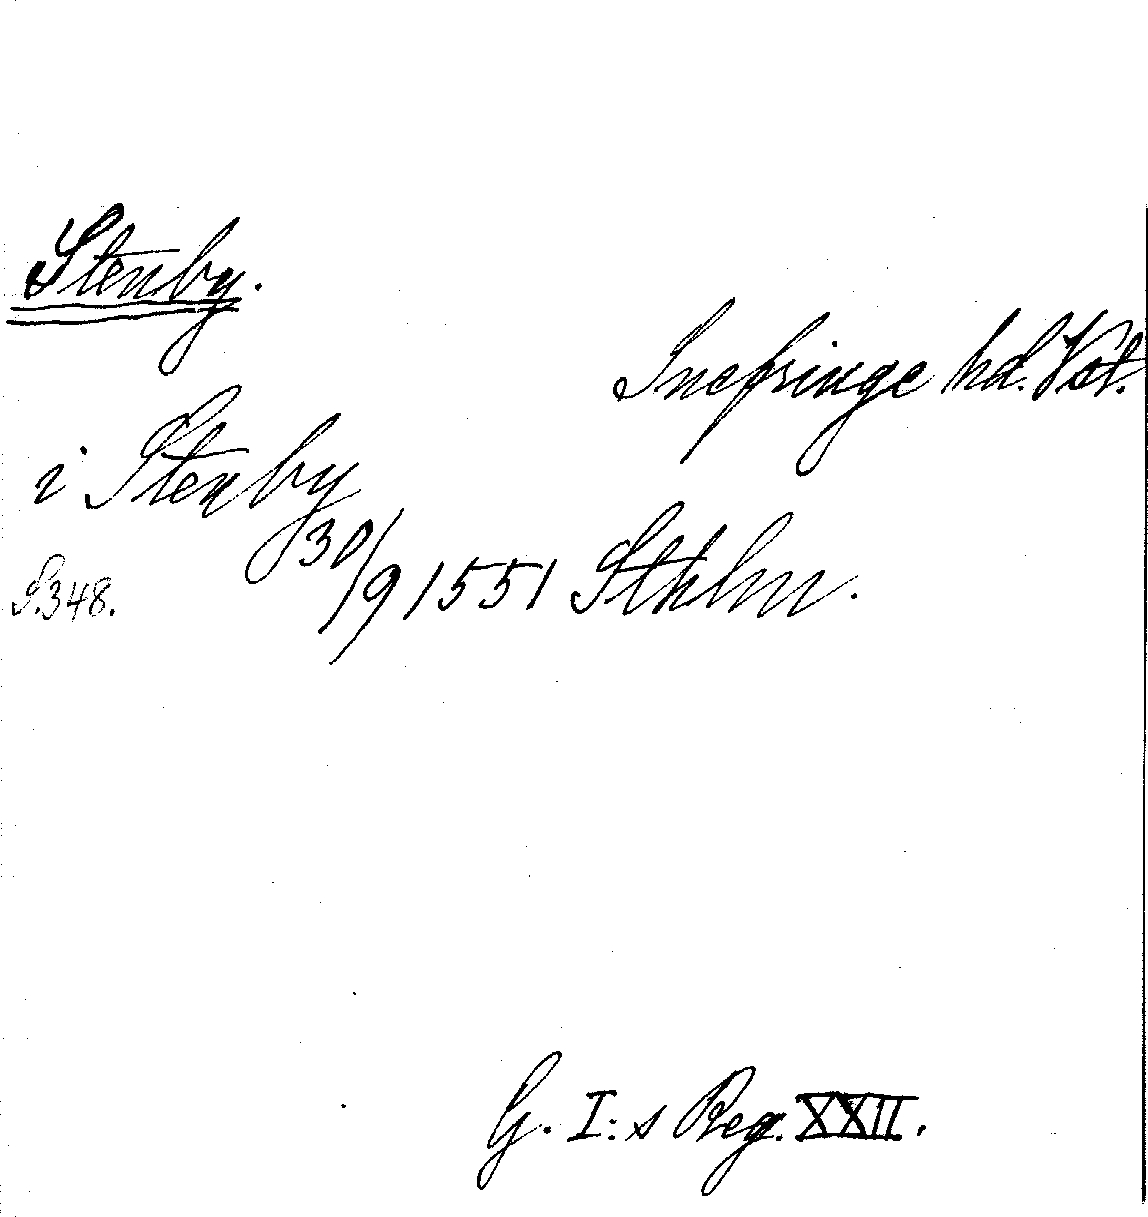 Stenby.
Snefringe hd. Vstm.
i Stenby
30/9 1551 Sthlm.
S. 348.
G. I:s Reg. XXII.